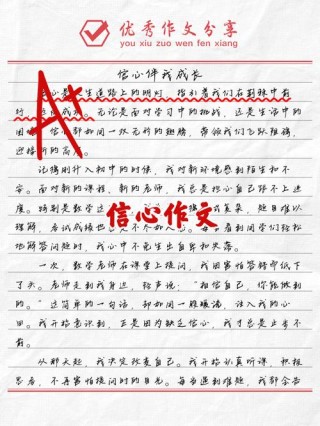 优秀作文分享
you xiu zuo wen fen xiang
信心伴我成长
信心是 生道路上的明灯，指引着我们在荆棘中前
行， 成 。无论是面对学习中的挑战，还是生活中的
困 ，信心都如同一双无形的翅膀，带领我们飞跃阻碍，
迎接新的高 。
A+
记得刚升入初中的时候，我对新环境感到陌生和不
安。面对新的课程、新的老师，我总是担心自己跟不上进
度。特别是数学 复杂，题目难以
理解，考试成绩 不尽如人 。每 看到同学们轻松
地解答问题时，我心中不免生出自卑和失落。
信心作文
一次，数学老师在课堂上提问，我因害怕答错而低下
了头。老师走到我身边，轻声说：“相信自己，你能做到
的。”这简单的一句话，却如同一股暖流，注入我的心
田。我开始意识到，正是因为缺乏信心，我才总是止步不
前。
从那天起，我决定改变自己。我开始认真听课，积极
思考，不再害怕提问时的目光。每当遇到难题，我都会告